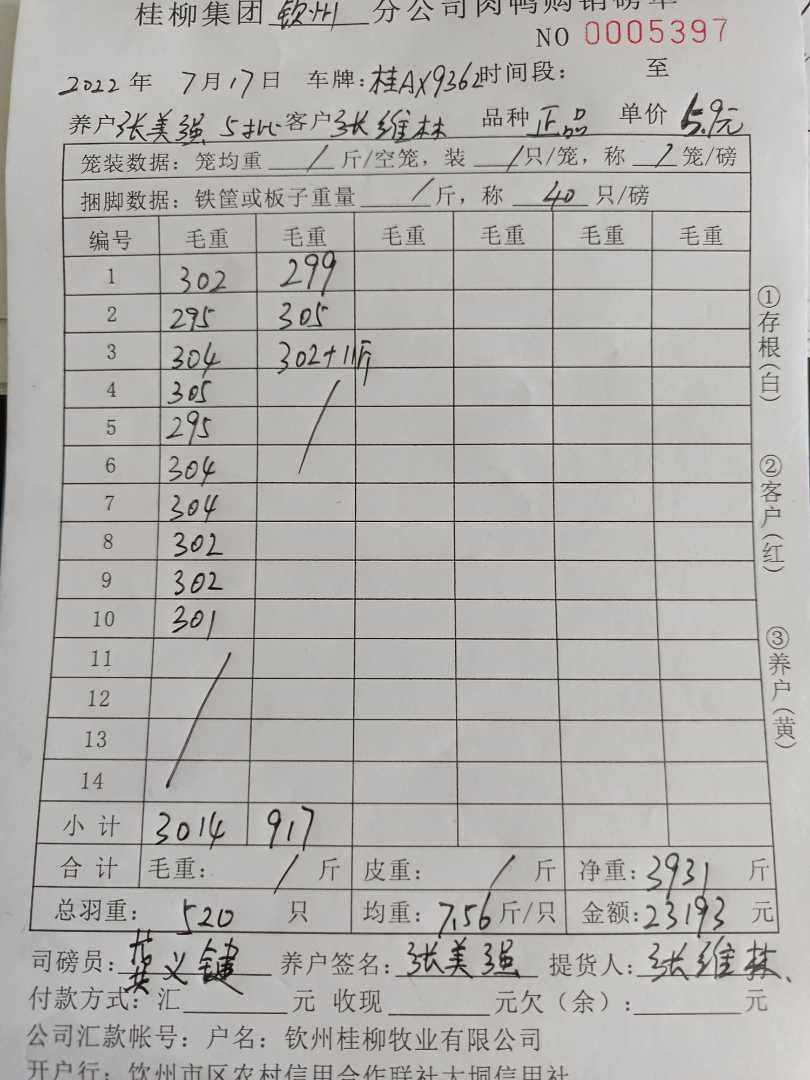 桂柳集团 钦州 分公司肉鸭购销磅单
NO 0005397
2022年 7月17日 车牌:桂AX9362 时间段: 至
养户 张美强 5批 客户 张维林 品种 正品 单价 5.9元
笼装数据:笼均重 / 斤/空笼,装 / 只/笼,称 / 笼/磅
捆脚数据:铁筐或板子重量 / 斤,称 40 只/磅
编号 毛重 毛重 毛重 毛重 毛重 毛重
1 302 299
2 295 305
3 304 302+11斤
4 305 /
5 295
6 304
7 304
8 302
9 302
10 301
11 /
12
13
14
小计 3014 917
合计 毛重: / 斤 皮重: / 斤 净重:3931 斤
总羽重: 520 只 均重:7.56斤/只 金额:23193 元
司磅员: 义键 养户签名: 张美强 提货人: 张维林
付款方式:汇 元 收现 元欠(余): 元
公司汇款帐号:户名:钦州桂柳牧业有限公司
开户行:钦州市区农村信用合作联社大垌信用社
①存根(白)
②客户(红)
③养户(黄)